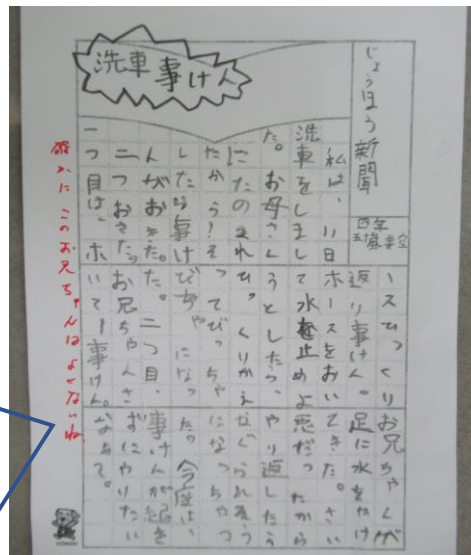 じょうほう新聞
四年
洗車事けん
私は、11日
洗車をしまし
た。お母さん
にたのまれ
たから!そ
したら事け
んがおきた。
二つおきた。
一つ目は、ホ
ースひっくり
返り事けん。
ホースをおい
て水を止めよ
うとしたら、
ひっくりかえ
ってびっちゃ
びちゃになっ
た。二つ目、
お兄ちゃんさ
いてー事けん。
お兄ちゃんが
足に水をかけ
てきた。さい
悪だったから
やり返したら
なぐられそう
になっちゃっ
た。今度は、
事けんが起き
ずにやりたい
なあて。
確かにこのお兄ちゃんはよくないね。